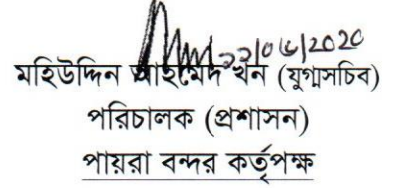 ২২/০৬/2020
মহিউদ্দিন আহমেদ খান (যুগ্মসচিব)
পরিচালক (প্রশাসন)
পায়রা বন্দর কর্তৃপক্ষ